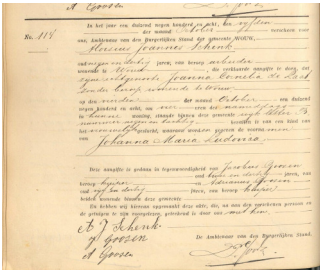 A Goosen
No. 114.
In het jaar een duizend negen honderd en acht, den vijfden
der maand October verscheen voor
ons, Ambtenaar van den Burgerlijken Stand der gemeente WOUW,
Aloisius Joannes Schenk
jaren, van beroep arbeider
wonende te Wouw, die verklaarde aangifte te doen, dat
zijne echtgenoote Joanna Cornelia de Laat
zonder beroep wonende te Wouw
op den der maand October een duizend
negen honderd en acht, des
hunne woning, staande binnen deze gemeente wijk letter B,
nummer negen en tachtig bevallen is van een kind van
het geslacht, waaraan worden gegeven de voornamen
Johanna Maria Ludovica
Deze aangifte is gedaan in tegenwoordigheid van Jacobus Goosen
beroep en dertig jaren, van
en Adrianus Goosen
oud jaren, van beroep
beiden wonende binnen deze gemeente.
En hebben wij hiervan opgemaakt deze akte, die, na aan den opgeroepen persoon en
de getuigen te zijn voorgelezen, geteekend is door ons met hen
A J Schenk
J Goosen
A Goosen
De Ambtenaar van den Burgerlijken Stand,